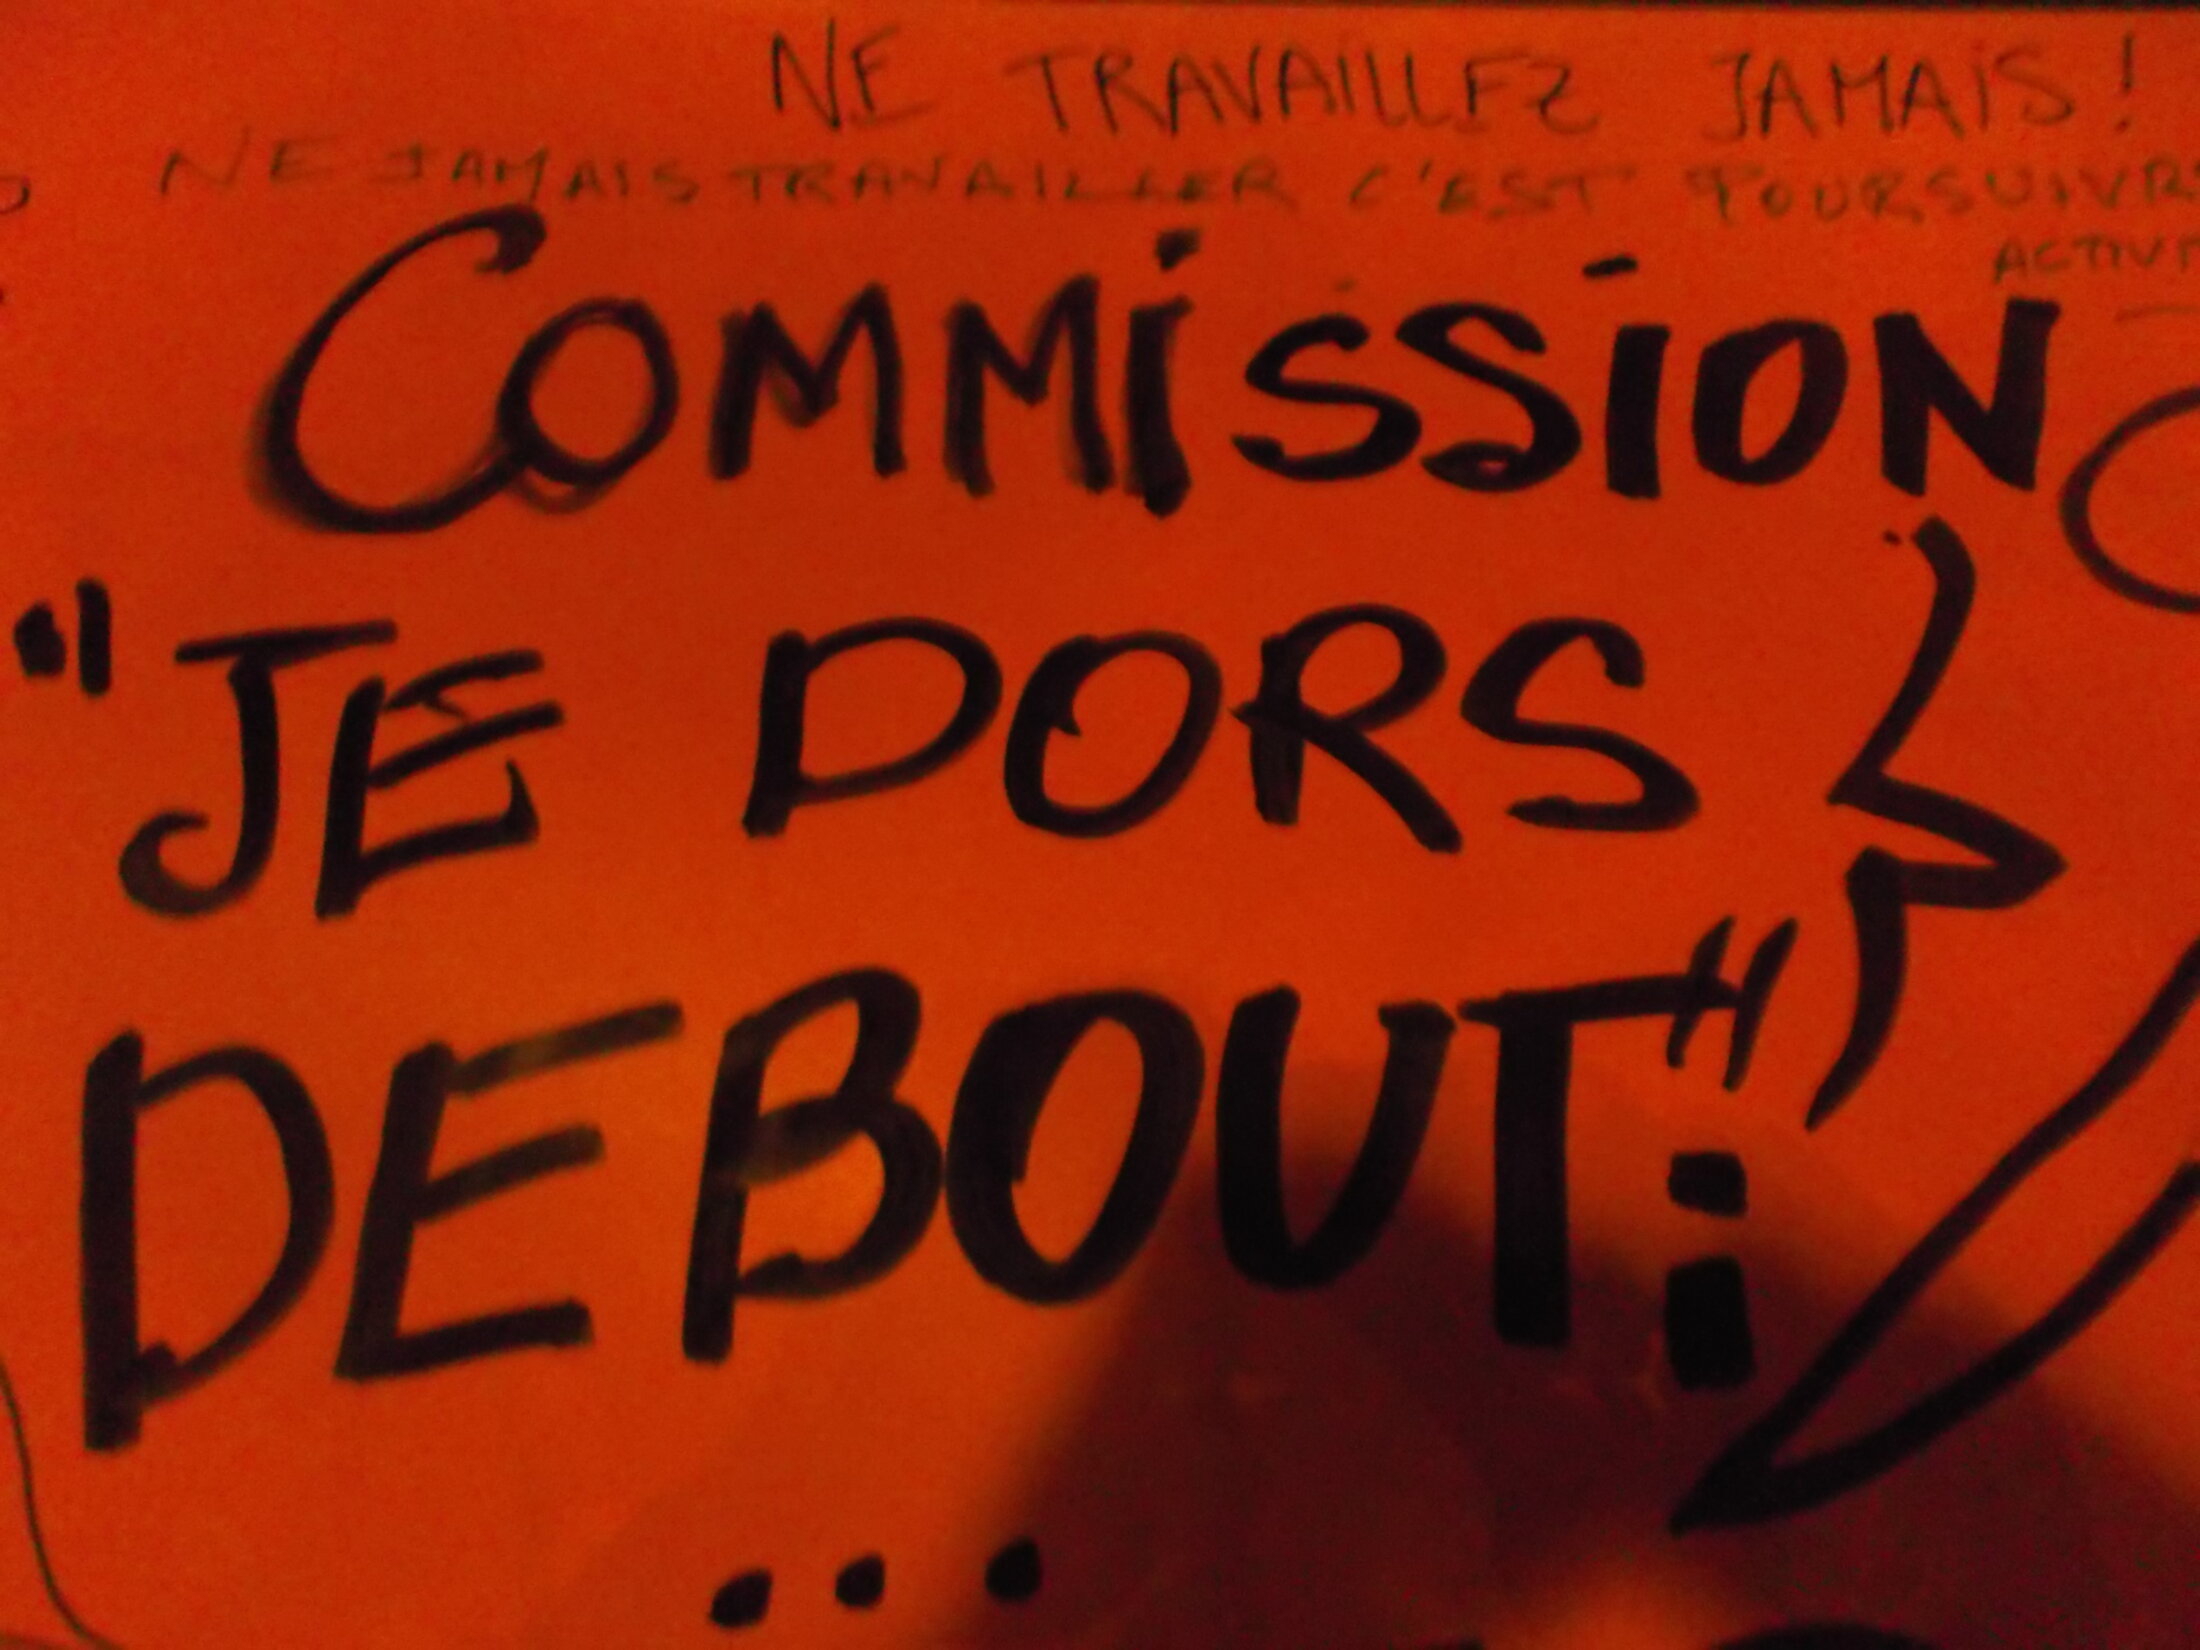 NE TRAVAILLEZ JAMAIS !
NE JAMAIS TRAVAILLER C'EST POURSUIVRE
COMMiSSiON
"JE DORS
DEBOUT":
...